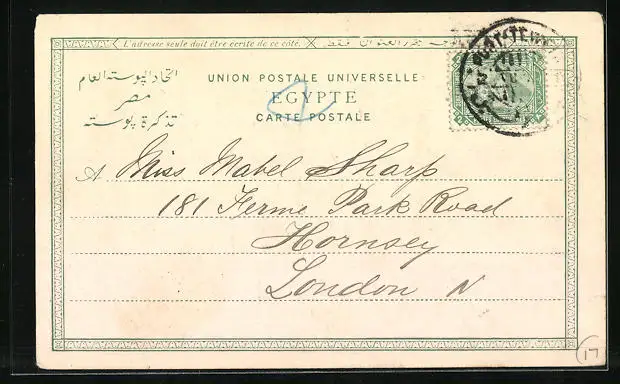 L'adresse seule doit être écrite de ce côté.
اتحاد البوسته العام
مصر
تذكرة بوسته
UNION POSTALE UNIVERSELLE
EGYPTE
CARTE POSTALE
A Miss Mabel Sharp
181 Ferme Park Road
Hornsey
London N
17